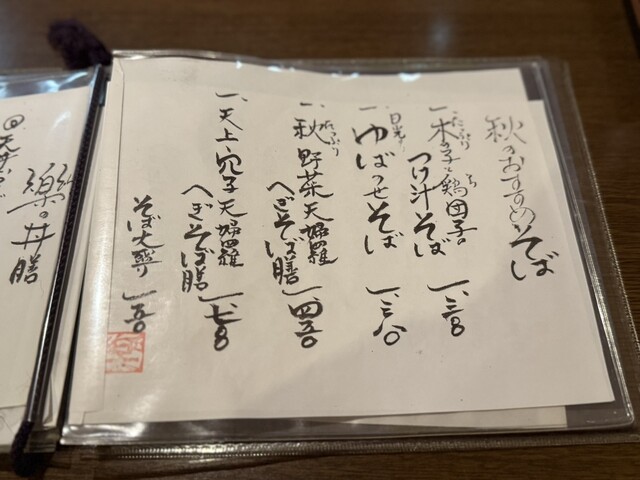 秋のおすすめそば
一、木の子と鶏団子の
たっぷり
つけ汁そば 一、三〇
一、ゆばのせそば 一、三八〇
日光
一、秋野菜天婦羅
たっぷり
へぎそば膳 一、四五〇
一、天上、穴子天婦羅
へぎそば膳 一、七〇
そば大盛り 一五〇
樂の井膳